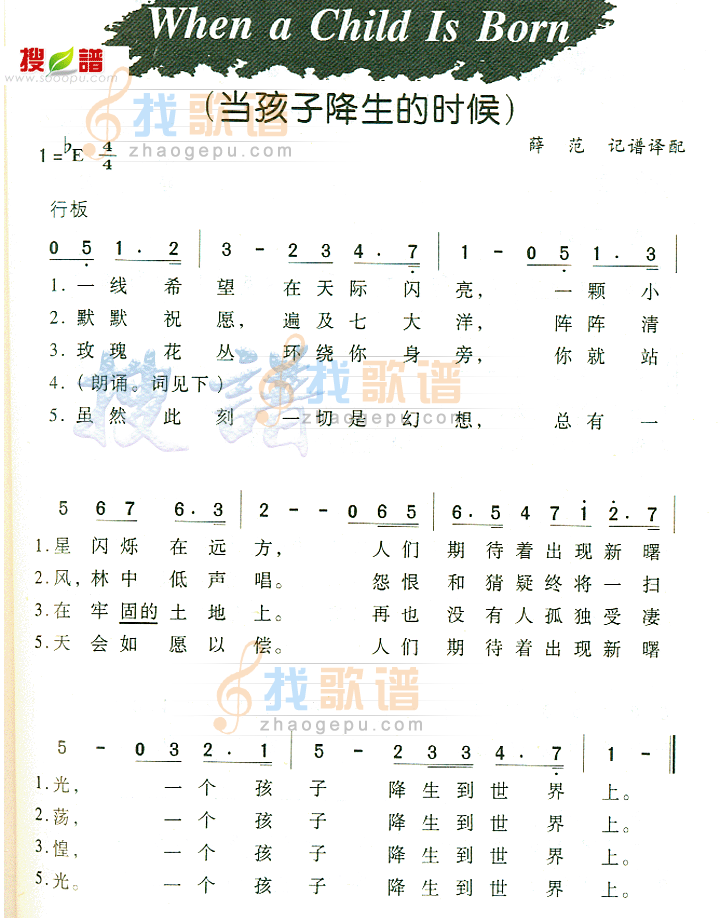 When a Child Is Born
搜谱
www.sooopu.com
(当孩子降生的时候)
找歌谱
zhaogepu.com
1=♭E 4/4
薛 范 记谱译配
行板
0 5 1. 2 | 3 - 2 3 4. 7 | 1 - 0 5 1. 3 |
1. 一线希望在天际闪亮, 一颗小
2. 默默祝愿, 遍及七大洋, 阵阵清
3. 玫瑰花丛环绕你身旁, 你就站
4. (朗诵。词见下)
5. 虽然此刻一切是幻想, 总有一
搜谱
找歌谱
zhaogepu.com
5 6 7 6. 3 | 2 - - 0 6 5 | 6. 5 4 7 1 2. 7 |
1. 星闪烁在远方, 人们期待着出现新曙
2. 风, 林中低声唱。 怨恨和猜疑终将一扫
3. 在牢固的土地上。 再也没有人孤独受凄
5. 天会如愿以偿。 人们期待着出现新曙
找歌谱
zhaogepu.com
5 - 0 3 2. 1 | 5 - 2 3 3 4. 7 | 1 - ‖
1. 光, 一个孩子降生到世界上。
2. 荡, 一个孩子降生到世界上。
3. 惶, 一个孩子降生到世界上。
5. 光。 一个孩子降生到世界上。